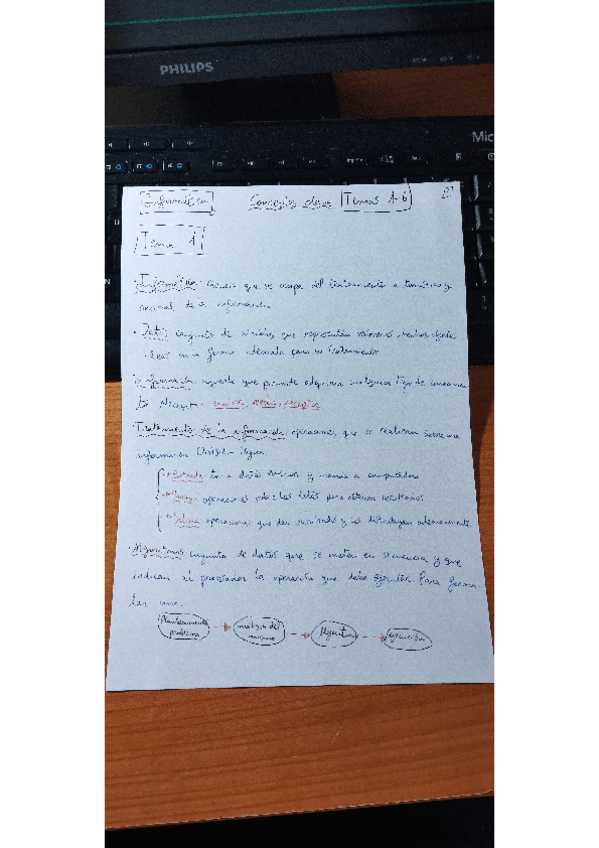 PHILIPS
Mic
Informática Conceptos clave Temas 1-6
Tema 1
· Informática: Ciencia que se ocupa del tratamiento automático y
racional de la información
· Dato: conjunto de que representan valores, hechos, ideas
en una forma adecuada para su tratamiento
· Información: aquello que permite adquirir cualquier tipo de
Tratamiento de la información: operaciones que se realizan sobre una
información
Entrada: toma datos y manda a computadora
operaciones sobre los datos para obtener resultados
Salida: operaciones que dan resultados y los distribuyen adecuadamente
· Algoritmo: conjunto de datos que se meten en secuencia y que
indican al procesador la operación que debe ejecutar. Para formu-
lar uno:
Planteamiento problema → análisis del mismo → Algoritmo → ejecución